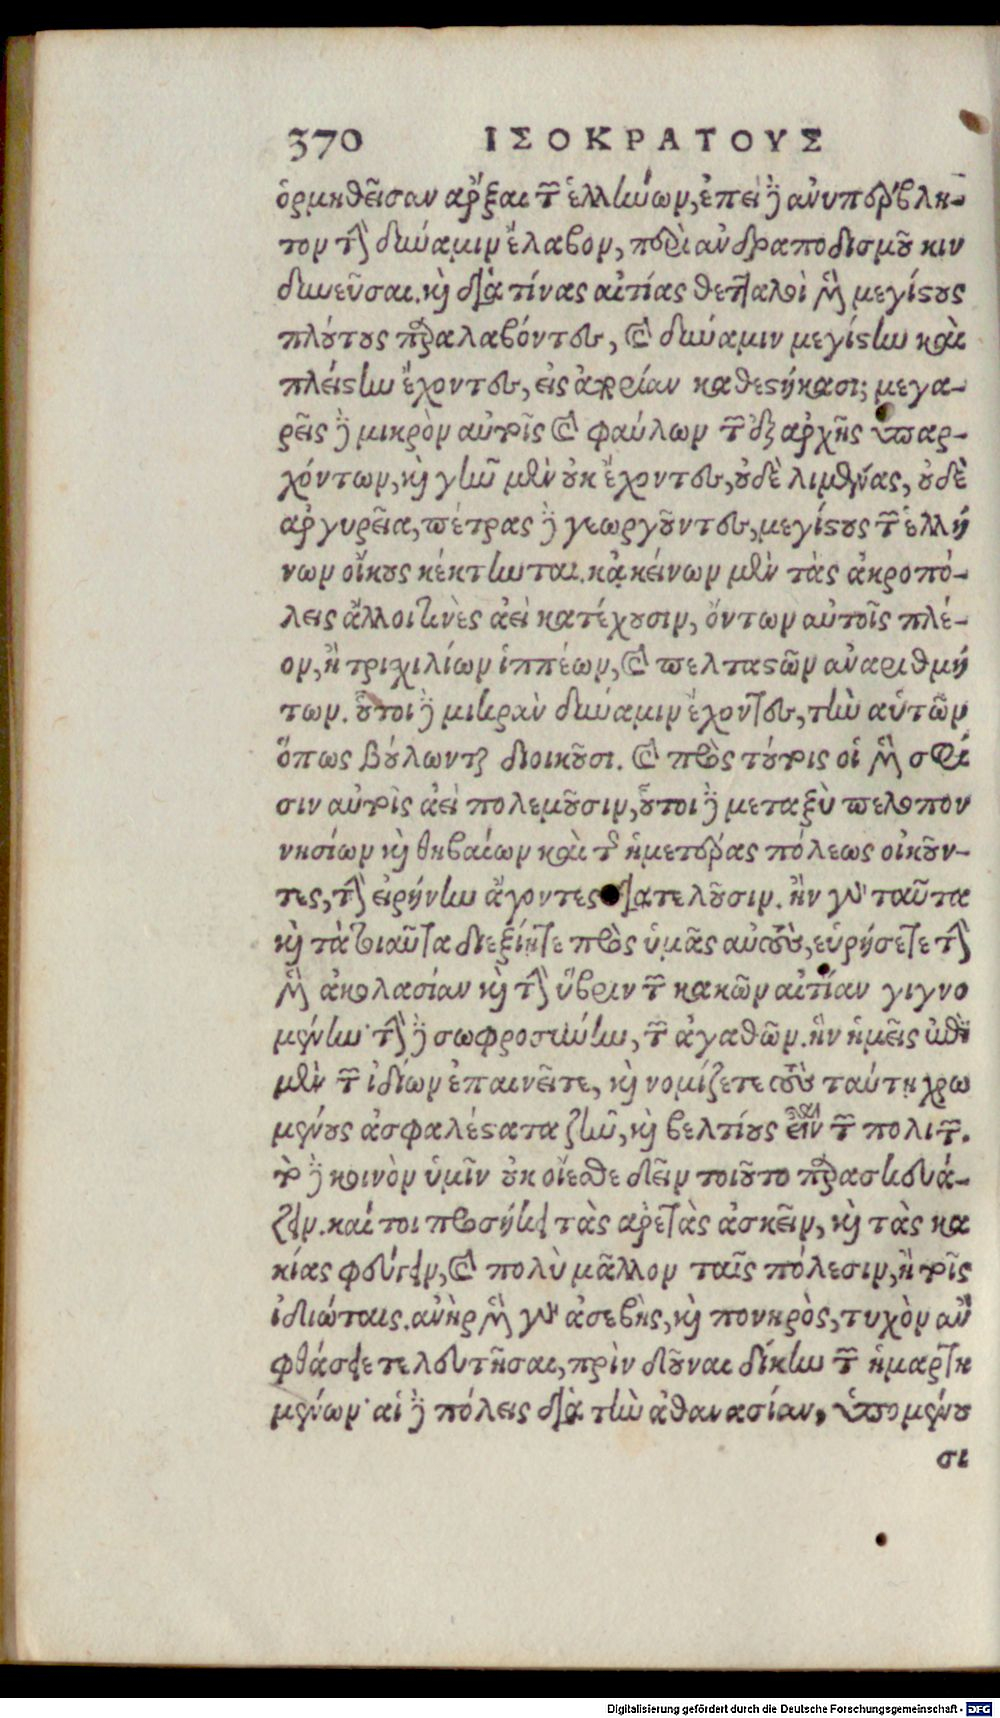 370 ΙΣΟΚΡΑΤΟΥΣ
ὁρμηθεῖσαν ἄρξαι τῶν ἑλλήνων, ἐπεὶ δὲ ἀνυπέρβλη-
τον τὴν δύναμιν ἔλαβον, περὶ ἀνδραποδισμοῦ κιν
δυνεῦσαι. καὶ διὰ τίνας αἰτίας θετταλοὶ μὲν μεγίστους
πλούτους παραλαβόντες, καὶ δύναμιν μεγίστην καὶ
πλείστην ἔχοντες, εἰς ἀπορίαν καθεστήκασι; μεγα-
ρεῖς δὲ μικρὸν αὐτοῖς καὶ φαύλων τῶν ἐξ ἀρχῆς ὑπαρ-
χόντων, καὶ γῆν μὲν οὐκ ἔχοντες, οὐδὲ λιμένας, οὐδὲ
ἀργυρεῖα, πέτρας δὲ γεωργοῦντες, μεγίστους τῶν ἑλλή
νων οἴκους κέκτηνται. κἀκείνων μὲν τὰς ἀκροπό-
λεις ἄλλοι τινὲς ἀεὶ κατέχουσιν, ὄντων αὐτοῖς πλέ-
ον, ἢ τριχιλίων ἱππέων, καὶ πελταστῶν ἀναριθμή
των. οὗτοι δὲ μικρὰν δύναμιν ἔχοντες, τὴν αὑτῶν
ὅπως βούλονται διοικοῦσι. καὶ πρὸς τούτοις οἱ μὲν σφί
σιν αὐτοῖς ἀεὶ πολεμοῦσιν, οὗτοι δὲ μεταξὺ πελοπον
νησίων καὶ θηβαίων καὶ τῆς ἡμετέρας πόλεως οἰκοῦν-
τες, τὴν εἰρήνην ἄγοντες διατελοῦσιν. ἢν γὰρ ταῦτα
καὶ τὰ τοιαῦτα διεξίητε πρὸς ὑμᾶς αὐτοὺς, εὑρήσετε τὴν
μὲν ἀκολασίαν καὶ τὴν ὕβριν τῶν κακῶν αἰτίαν γιγνο
μένην· τὴν δὲ σωφροσύνην, τῶν ἀγαθῶν. ἣν ἡμεῖς ἐπὶ
μὲν τῶν ἰδίων ἐπαινεῖτε, καὶ νομίζετε τοὺς ταύτῃ χρω
μένους ἀσφαλέστατα ζῆν, καὶ βελτίους εἶναι τῶν πολιτῶν.
τὸ δὲ κοινὸν ὑμῖν οὐκ οἴεσθε δεῖν τοιοῦτο παρασκευά-
ζειν. καίτοι προσήκει τὰς ἀρετὰς ἀσκεῖν, καὶ τὰς κα
κίας φεύγειν, καὶ πολὺ μᾶλλον ταῖς πόλεσιν, ἢ τοῖς
ἰδιώταις. ἀνὴρ μὲν γὰρ ἀσεβὴς, καὶ πονηρὸς, τυχὸν ἂν
φθάσειε τελευτῆσαι, πρὶν δοῦναι δίκην τῶν ἡμαρτη
μένων· αἱ δὲ πόλεις διὰ τὴν ἀθανασίαν, ὑπομένου
σι
Digitalisierung gefördert durch die Deutsche Forschungsgemeinschaft - DFG